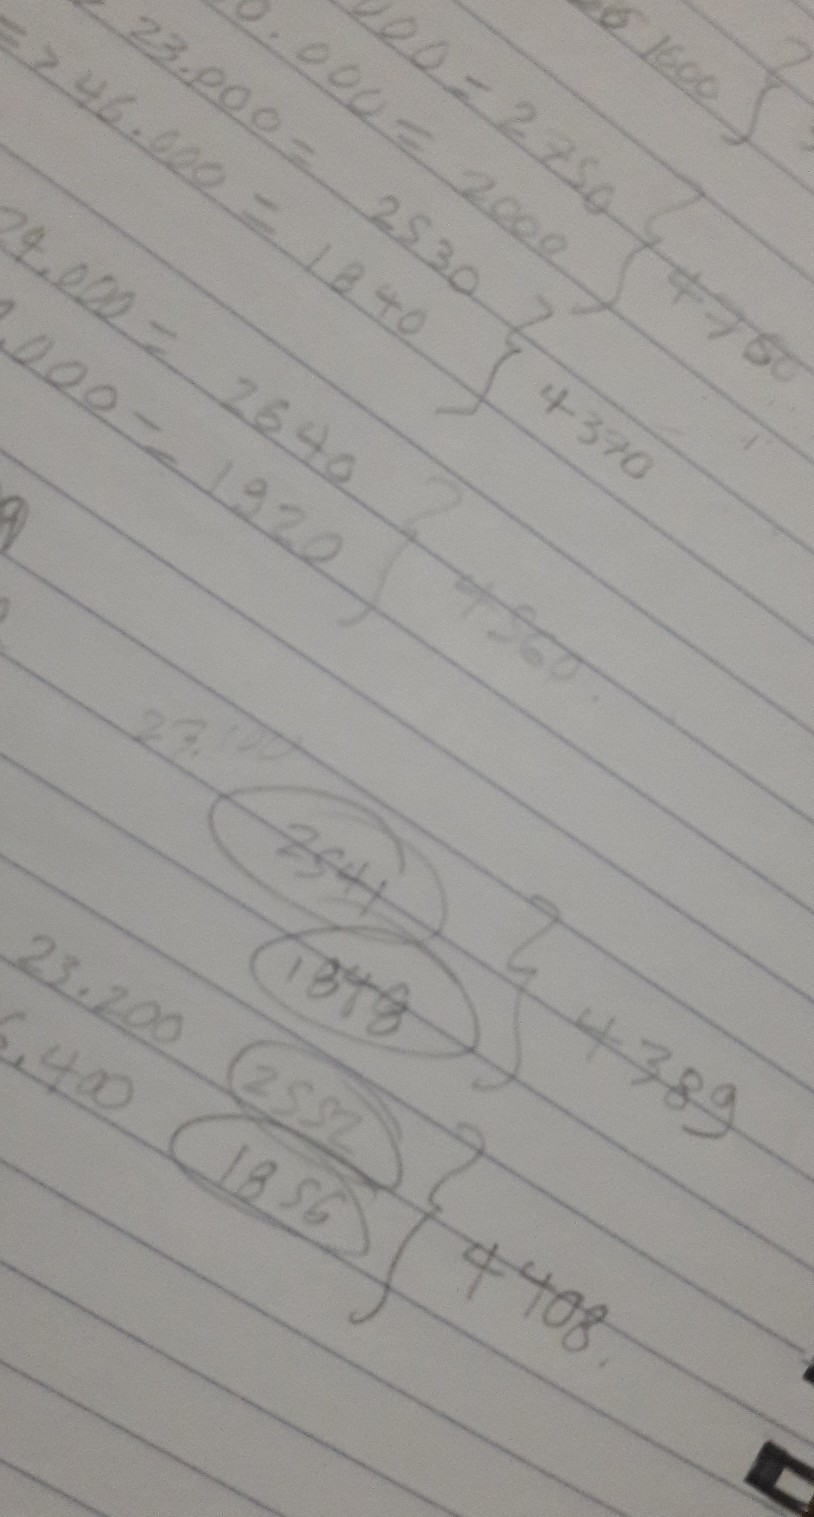 1600
000 = 2750
0.000 = 2000
4750
23.000 = 2530
=> 46.000 = 1840
4370
24.000 = 2640
.000 = 1920
4560.
23.100
2541
1848
4389
23.200 2552
6.400 1856
4408.